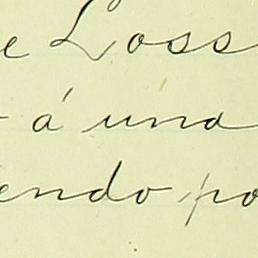 e Loss
á una
endo po